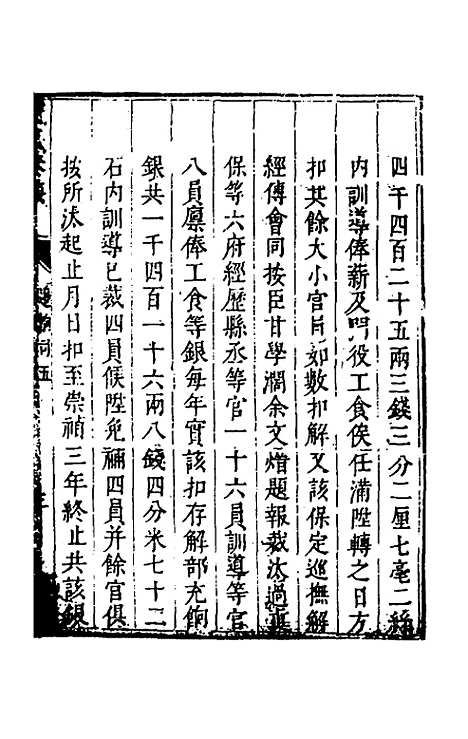 四千四百二十五兩三錢三分二厘七毫二絲
內訓導俸薪及門役工食俟任滿陞轉之日方
扣其餘大小官員如數扣解又該保定巡撫解
經傳會同按臣甘學濶余文熠題報裁汰過
保等六府經歷縣丞等官一十六員訓導等官
八員廪俸工食等銀每年實該扣存解部充餉
銀共一千四百一十六兩八錢四分米七十二
石內訓導已裁四員候陞免補四員并餘官俱
按所汰起止月日扣至崇禎三年終止共該銀